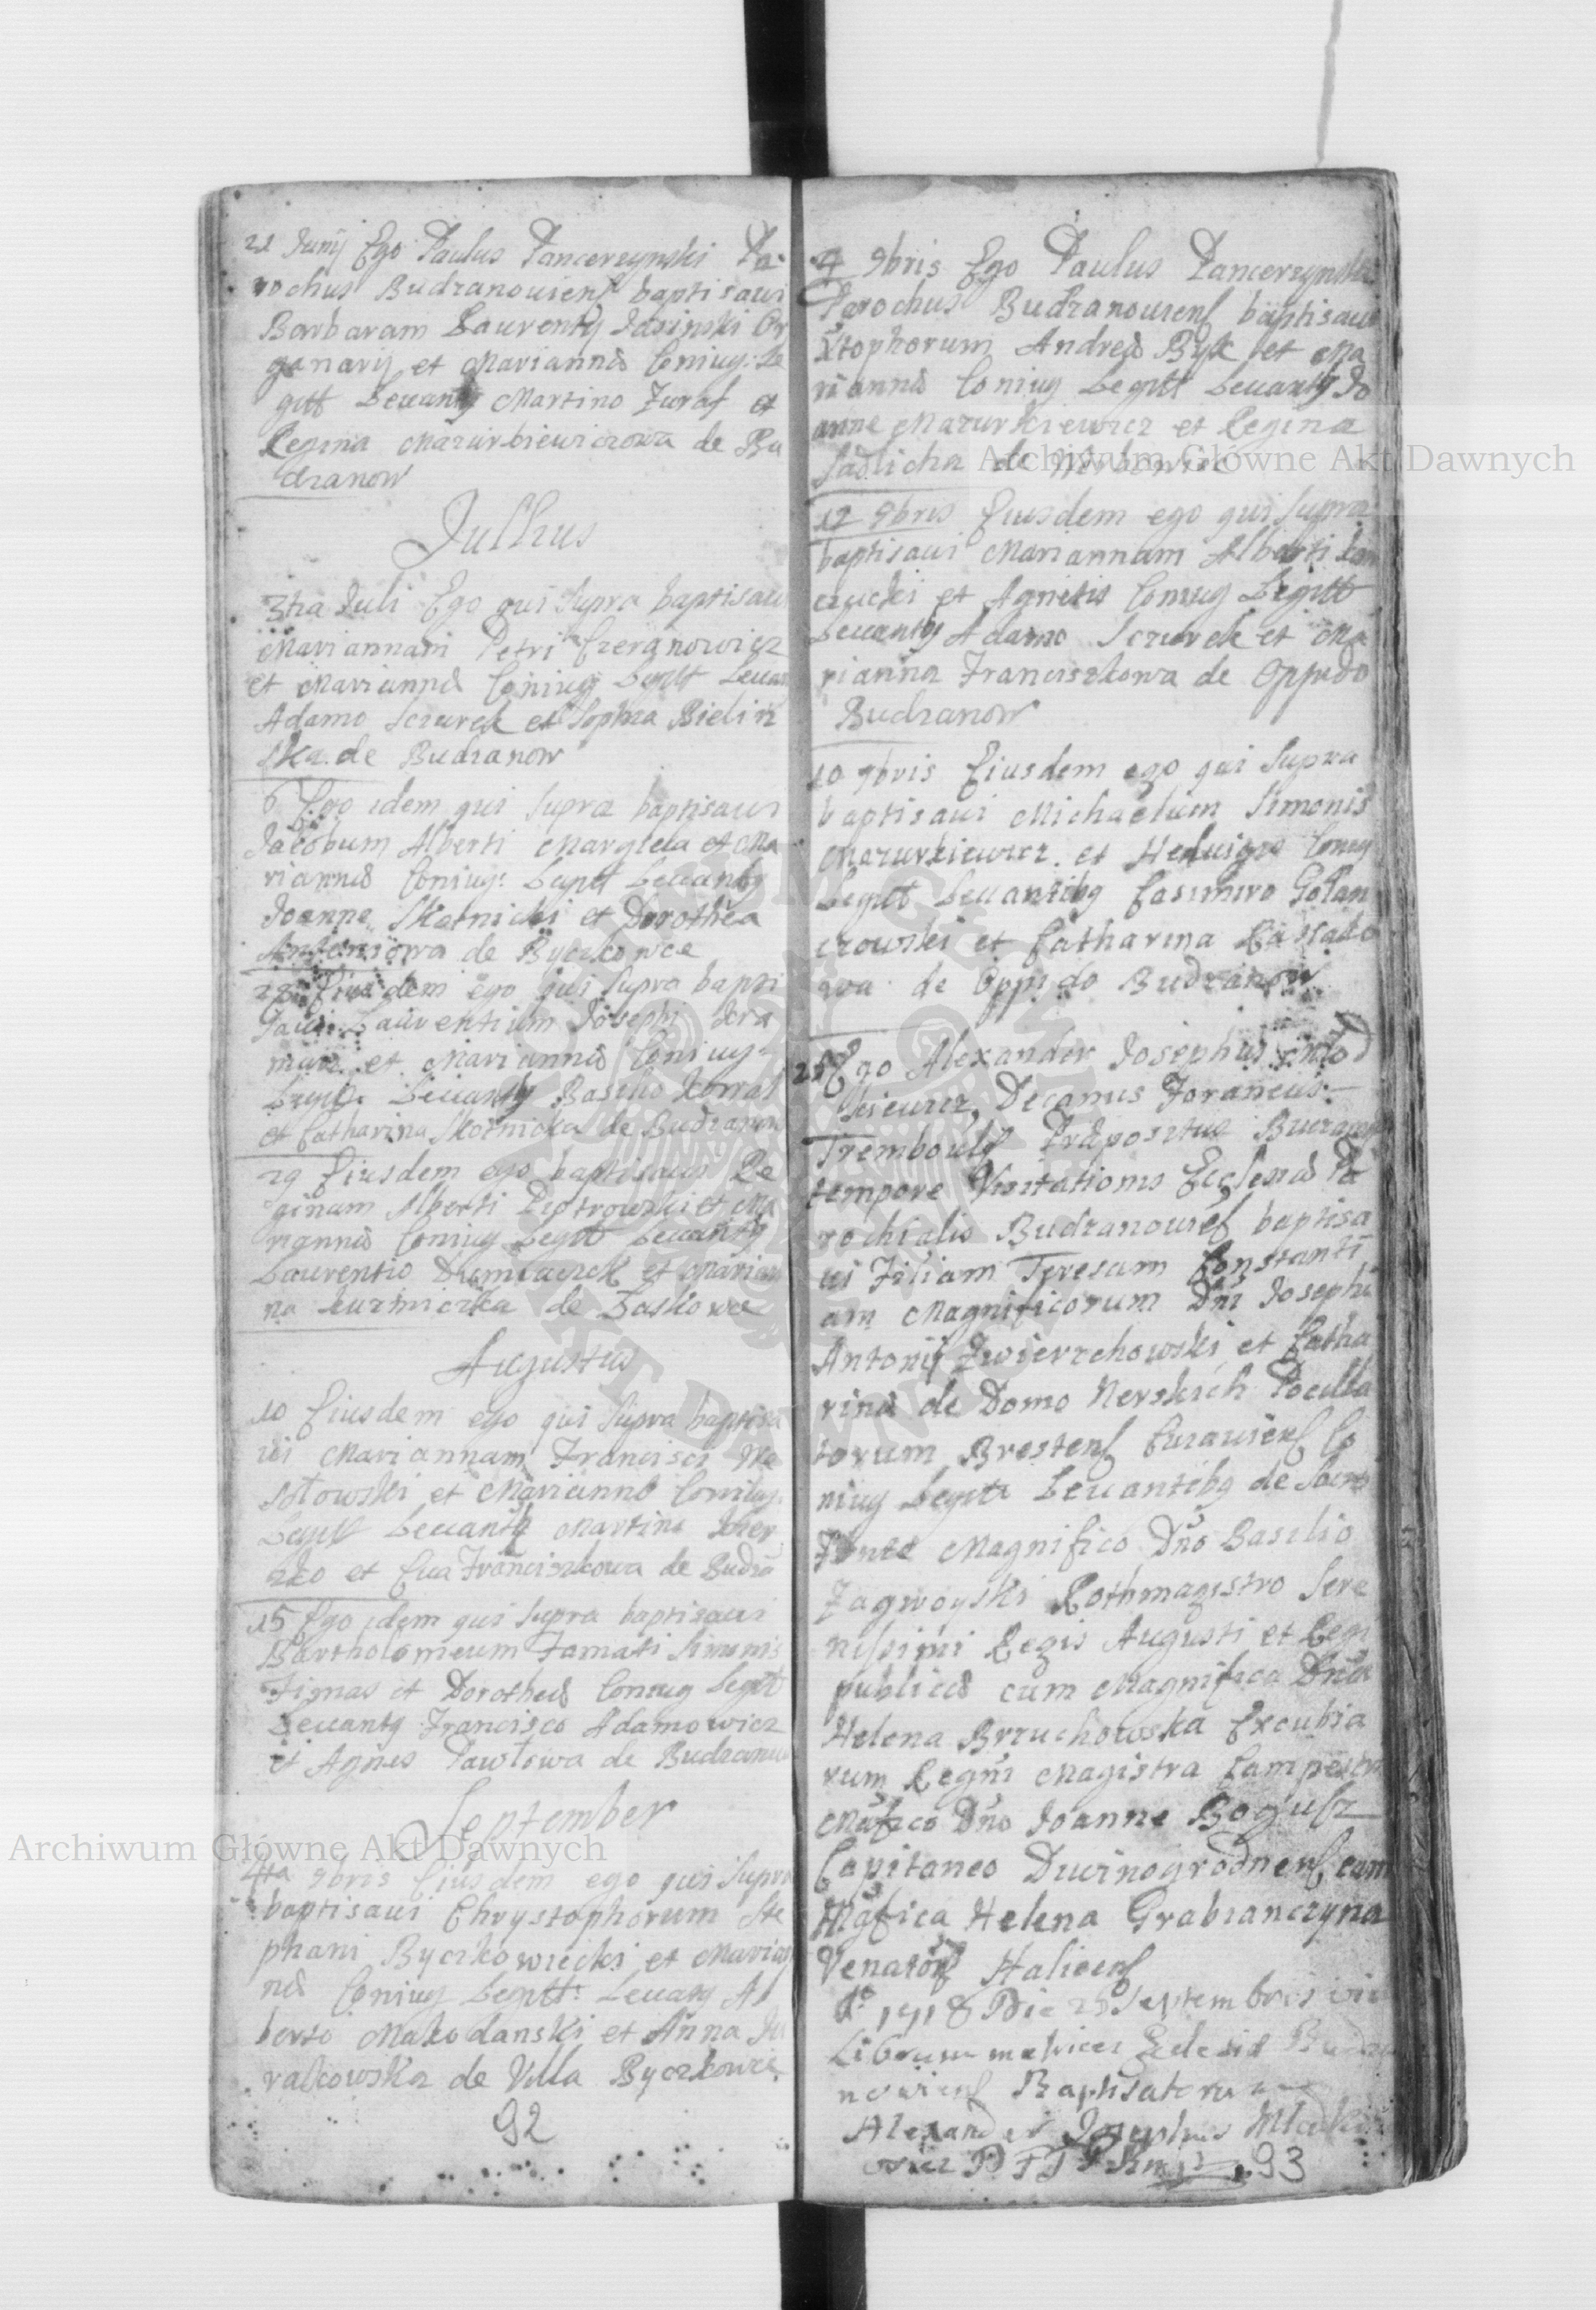 21 Junij Ego Paulus Pancerzynski Pa
rochus Budzanouiens baptisaui
Barbaram Laurentij Jasinski Or
ganarij et Mariannæ Coniug: Le
gitt Leuantq Martino Zuraf et
Regina Mazurkiewiczowa de Bu
dzanow
Julius
3tia Juli Ego qui supra baptisaui
Mariannam Petri Czerganowicz
et Mariannæ Coniug Legitt Leuan
Adamo Szczurek et Sophia Bielin
ska de Budzanow
6 Ego idem qui supra baptisaui
Jacobum Alberti Margiela et Ma
riannæ Coniug: Legitt Leuantq
Joanne Skotnicki et Dorothea
Antoniowa de Byczkowce
28 Eiusdem ego qui supra bapti
saui Laurentium Josephi
et Mariannæ Coniug
Legitt Leuantq Basilio Kowal
et Catharina Skotnicka de Budzanow
29 Eiusdem ego baptisaui Re
ginam Alberti Piotrowski et Ma
riannæ Coniug Legitt Leuantq
Laurentio et Marian
na Kuzmiczka de Laskowce
Augustus
10 Eiusdem ego qui supra baptisa
ui Mariannam Francisci Wa
sołowski et Mariannæ Coniug:
Legitt Leuantq Martino
et Eua Franciszkowa de Budza
15 Ego idem qui supra baptisaui
Bartholomeum Famati Simonis
Fignas et Dorotheæ Coniug Legitt
Leuantq Francisco Adamowicz
et Agnes Pawłowa de Budzanow
September
4ta 9bris Eiusdem ego qui supra
baptisaui Chrystophorum Ste
phani Byczkowiecki et Marian
næ Coniug Legitt: Leuantq Al
berto Makodanski et Anna
ralkowska de Villa Byczkowce
92
4 9bris Ego Paulus Pancerzynski
Parochus Budzanouiens baptisaui
Xtophorum Andreæ Byk et Ma
riannæ Coniug Legitt Leuantq Jo
anne Mazurkiewicz et Regina
Sadlicha de
12 9bris Eiusdem ego qui supra
baptisaui Mariannam Alberti
czucki et Agnetis Coniug Legitt
Leuantq Adamo Szczurek et Ma
rianna Franciszkowa de Oppido
Budzanow
10 9bris Eiusdem ego qui supra
baptisaui Michaelum Simonis
Mazurkiewicz et Heduigis Coniug
Legitt Leuantibq Casimiro Golan
czowski et Catharina
wa de Oppido Budzanow
25 Ego Alexander Josephus Mlod
kiewicz, Decanus Foraneus
Trembouls Præpositus
tempore Visitationis Ecclesiæ Pa
rochialis Budzanouies baptisa
ui Filiam Teresam Constanti
am Magnificorum Dni Josephi
Antonij Zwierzchowski et Catha
rinæ de Domo Nerskich Pocilla
torum Brestens Cuiauiens Co
niug Legitt Leuantibq de Sacro
Fonte Magnifico Dno Basilio
Zagwoyski Rothmagistro Sere
nissimi Regis Augusti et Rei
publicæ cum Magnifica Dna
Helena Brzuchowska Excubia
rum Regni Magistra Campestri
Mafico Dno Joanne Bogusz
Capitaneo Dwinogrodnens cum
Mafica Helena Grabianczyna
Venators Haliciens
Ao 1718 Die 25 Septembris
Librum metrices Eclesiæ Budza
nouiens Baptisatorum
Alexander Josephus Mlodki
ewicz D F T P
93
Archiwum Główne Akt Dawnych
Archiwum Główne Akt Dawnych